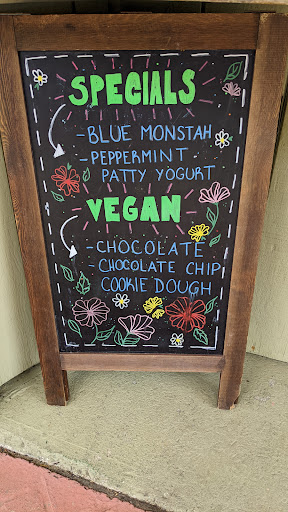 SPECIALS
-BLUE MONSTAH
-PEPPERMINT
PATTY YOGURT
VEGAN
-CHOCOLATE
CHOCOLATE CHIP
COOKIE DOUGH